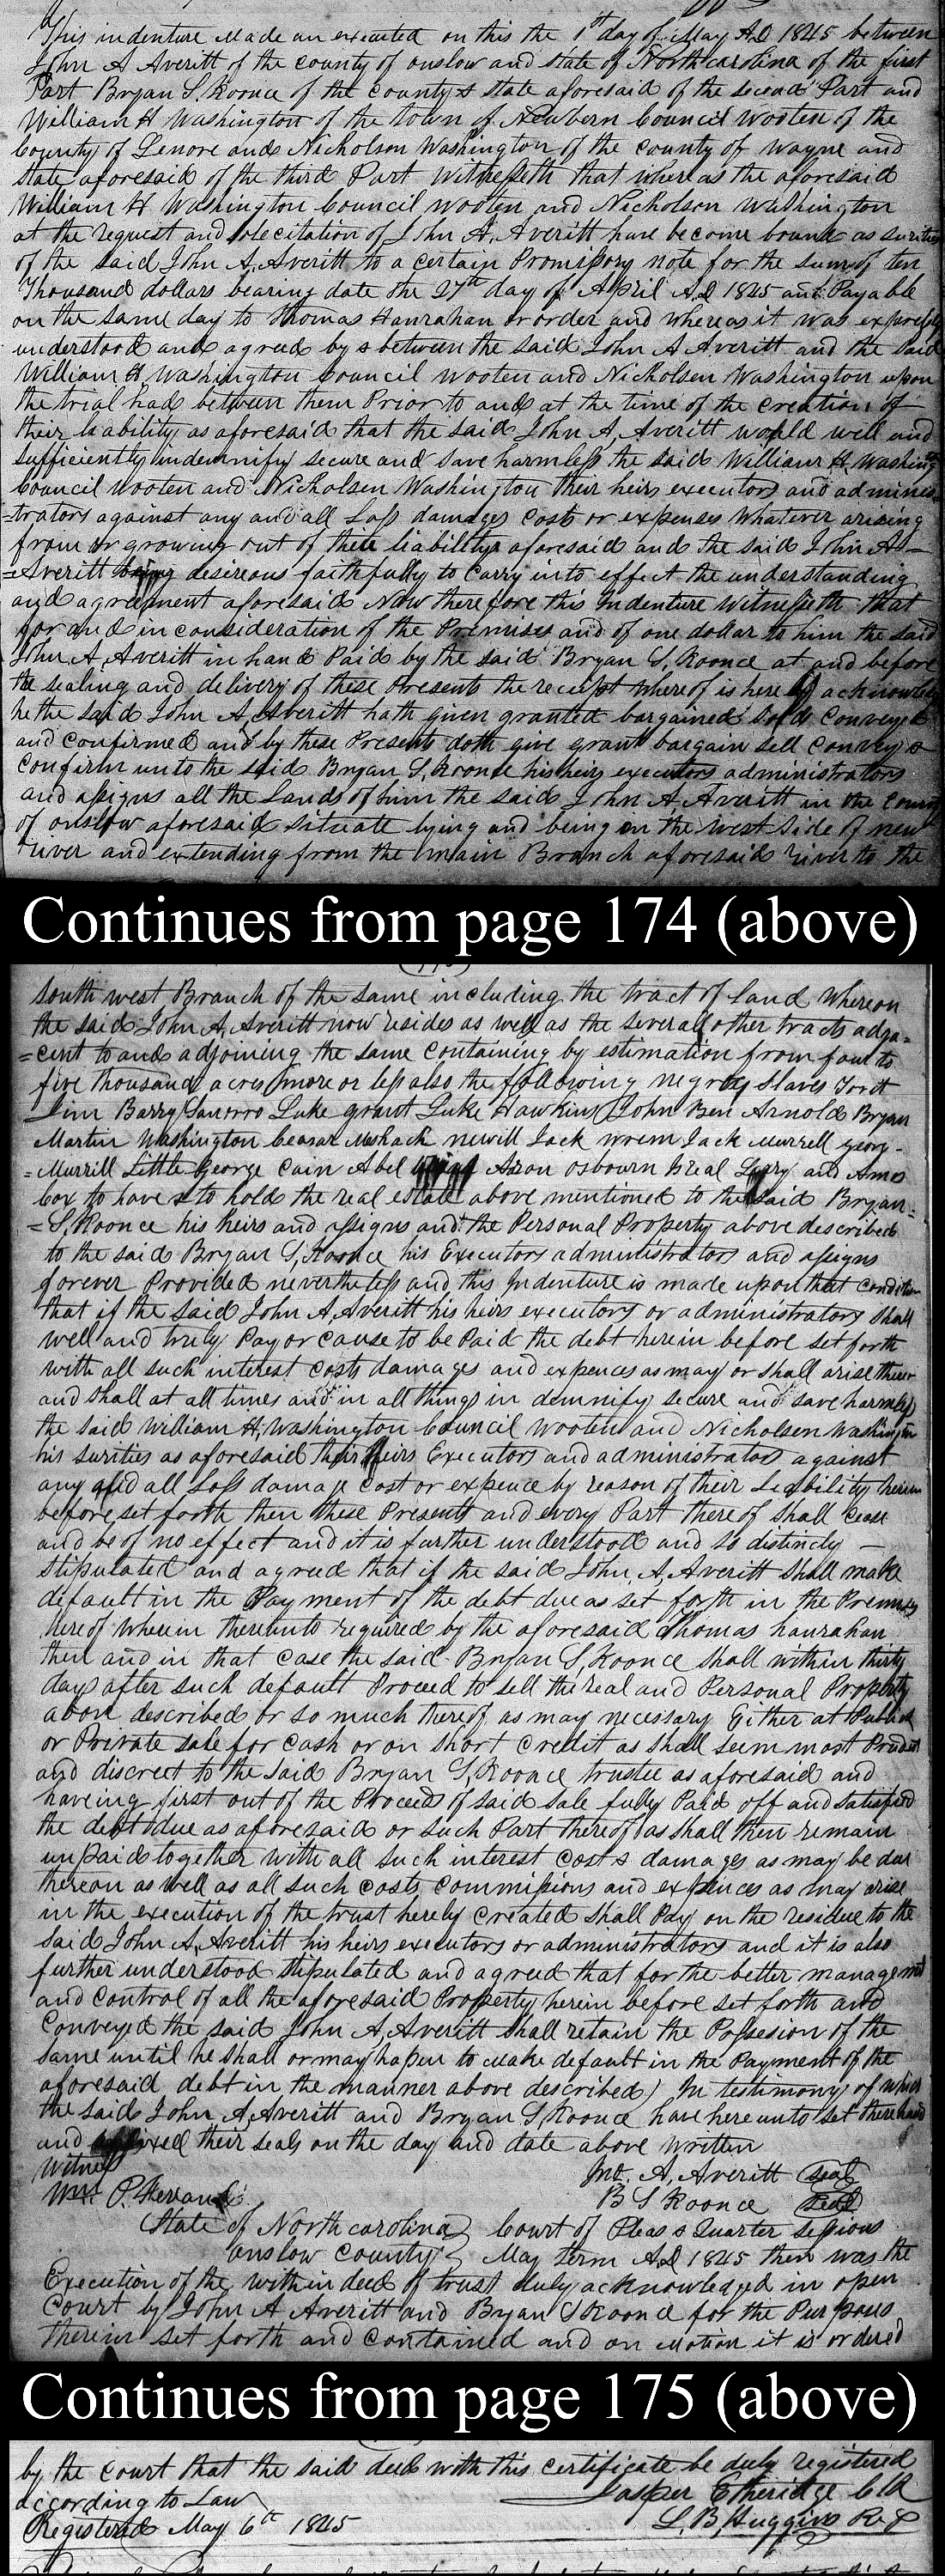 This indenture Made an executed on this the 1st day of May AD 1845 between
John A Averitt of the county of onslow and state of North carolina of the first
Part Bryan S. Koonce of the county & state aforesaid of the second Part and
William H Washington of the town of Newbern Council Wooten of the
County of Lenore and Nicholson Washington of the county of Wayne and
state aforesaid of the third Part Witnesseth that whereas the aforesaid
William H Washington Council Wooten and Nicholson Washington
at the request and solecitation of John A. Averitt have become bound as surities
of the said John A. Averitt to a certain Promissory note for the sum of ten
Thousand dollars bearing date the 27th day of April AD 1845 and Payable
on the same day to Thomas Hanrahan or order and whereas it was expressly
understood and agreed by & between the said John A Averitt and the said
William H Washington Council Wooten and Nicholson Washington upon
the trial had between them Prior to and at the time of the creation of
their liability as aforesaid that the said John A, Averitt would well and
sufficiently indemnify secure and save harmless the said William H Washing
Council Wooten and Nicholson Washington their heirs executors and adminis
=trators against any and all Loss damages Costs or expenses Whatever arising
from or growing out of their liability aforesaid and the said John A =
=Averitt being desireous faithfully to Carry into effect the understanding
and agreement aforesaid Now therefore this Indenture Witnesseth that
for and in consideration of the Premises and of one dollar to him the said
John A, Averitt in hand Paid by the said Bryan S, Koonce at and before
the sealing and delivery of these Presents the receipt whereof is hereby acknowle
he the said John A, Averitt hath given granted bargained sold Conveyed
and confirmed and by these Presents doth give grant bargain sell Convey &
Confirm unto the said Bryan S, Koonce his heirs executors administrators
and assigns all the Lands of him the said John A Averitt in the County
of onslow aforesaid situate lying and being on the West side of new
river and extending from the main Branch aforesaid river to the
Continues from page 174 (above)
south west Branch of the same including the tract of land Whereon
the said John A, Averitt now resides as well as the several other tracts adja=
=cent to and adjoining the same Containing by estimation from four to
five thousand acres more or less also the following negroes slaves
Jim Barry Luke grant Luke Hawkins John Ben Arnold Bryan
Martin Washington Ceasar Meshack newill Jack Jack Murrell georg-
=Murrill Little George Cain Abel Aron osbourn and Amos
Cox to have & to hold the real estate above mentioned to the said Bryan=
=S, Koonce his heirs and assigns and the Personal Property above described
to the said Bryan S, Koonce his Executors administrators and assigns
forever Provided nevertheless and this Indenture is made upon that condition
that if the said John A, Averitt his heirs executors or administrators shall
well and truly Pay or cause to be Paid the debt herein before set forth
with all such interest costs damages and expences as may or shall arise
and shall at all times and in all things in demnify secure and save harmless
the said William H, Washington Council Wooten and Nicholson Washington
his surities as aforesaid their heirs Executors and administrators against
any and all Loss damage Cost or expence by reason of their Liability herein
before set forth then these Presents and every Part there of shall cease
and be of no effect and it is further understood and so distincly —
stipulated and agreed that if the said John, A, Averitt shall make
default in the Payment of the debt due as set forth in the Premises
hereof Wherein thereunto required by the aforesaid Thomas hanrahan
then and in that Case the said Bryan S, Koonce shall within thirty
days after such default Proceed to sell the real and Personal Property
above described or so much thereof as may necessary Either at Public
or Private sale for Cash or on short credit as shall seem most Prudent
and discreet to the said Bryan S, Koonce trustee as aforesaid and
haveing first out of the Proceeds of said sale fully Paid off and satisfied
the debt due as aforesaid or such Part thereof as shall then remain
unpaid together with all such interest Cost & damages as may be due
thereon as well as all such costs Commissions and expences as may arise
in the execution of the trust hereby Created shall Pay on the residue to the
said John A, Averitt his heirs executors or administrators and it is also
further understood stipulated and agreed that for the better management
and Control of all the aforesaid Property herein before set forth and
Conveyed the said John A, Averitt shall retain the Possesion of the
same until he shall or may hapen to Make default in the Payment of the
aforesaid debt in the manner above described) In testimony of which
the said John A, Averitt and Bryan S, Koonce have here unto set there hand
and affixed their seals on the day and date above Written
Witness Jno. A, Averitt seal
Wm P. B S Koonce seal
State of North carolina } Court of Pleas & Quarter sessions
onslow County } May term AD 1845 then was the
Execution of the within deed of trust duly acknowledged in open
Court by John A Averitt and Bryan S Koonce for the Purposes
therein set forth and contained and on Motion it is ordered
Continues from page 175 (above)
by the Court that the said deed with this certificate be duly registered
according to Law Jasper Etheridge Clk
Registered May 6th 1845 L. B, Huggins Reg